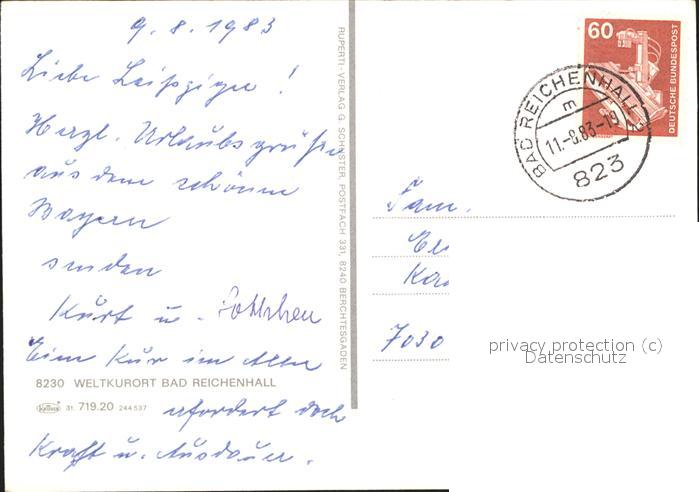 9.8.1983
Liebe Leipziger!
Herzl. Urlaubsgrüße
aus dem schönen
Bayern
senden
Kurt u.
Eine Kur im Alter
8230 WELTKURORT BAD REICHENHALL
31. 719.20 244 537
erfordert doch
Kraft u. Ausdauer.
RUPERTI-VERLAG G. SCHUSTER, POSTFACH 331, 8240 BERCHTESGADEN
60
DEUTSCHE BUNDESPOST
BAD REICHENHALL
m
11.-8.83-19
823
Fam.
7030
privacy protection (c)
Datenschutz